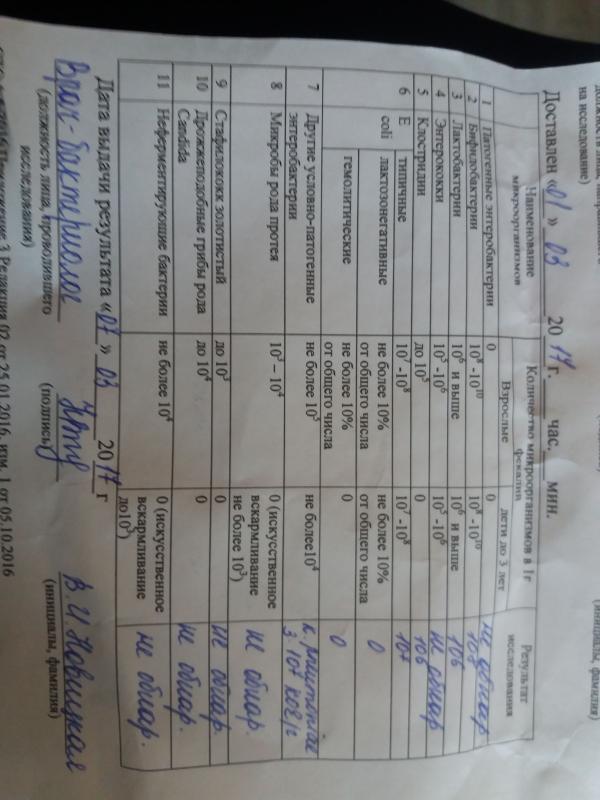 на исследование)
(инициалы, фамилия)
Доставлен «01» 03 2017 г. час. мин.
Наименование микроорганизмов
Количество микроорганизмов в 1г фекалий
Взрослые
дети до 3 лет
Результат исследования
1 Патогенные энтеробактерии 0 0 не обнар
2 Бифидобактерии 10⁸ -10¹⁰ 10⁸ -10¹⁰ 10⁸
3 Лактобактерии 10⁶ и выше 10⁶ и выше 10⁶
4 Энтерококки 10⁵ -10⁶ 10⁵ -10⁶ не обнар
5 Клостридии до 10⁵ 0 10⁶
6 E coli
типичные 10⁷ -10⁸ 10⁷ -10⁸ 10⁷
лактозонегативные не более 10% от общего числа не более 10% от общего числа 0
гемолитические не более 10% от общего числа 0 0
7 Другие условно-патогенные энтеробактерии не более 10⁵ не более10⁴ 3·10⁷ кое/г
8 Микробы рода протея 10³ – 10⁴ 0 (искусственное вскармливание не более 10³) не обнар.
9 Стафилококк золотистый до 10³ 0 не обнар.
10 Дрожжеподобные грибы рода Candida до 10⁴ 0 не обнар.
11 Неферментирующие бактерии не более 10⁴ 0 (искусственное вскармливание до10³) не обнар.
Дата выдачи результата «07» 03 2017 г
Врач-бактериолог В.И. Новицкая
(должность лица, проводившего (подпись) (инициалы, фамилия)
исследования)
Приложение 3 Редакция 02 от 25.01.2016, изм. 1 от 05.10.2016